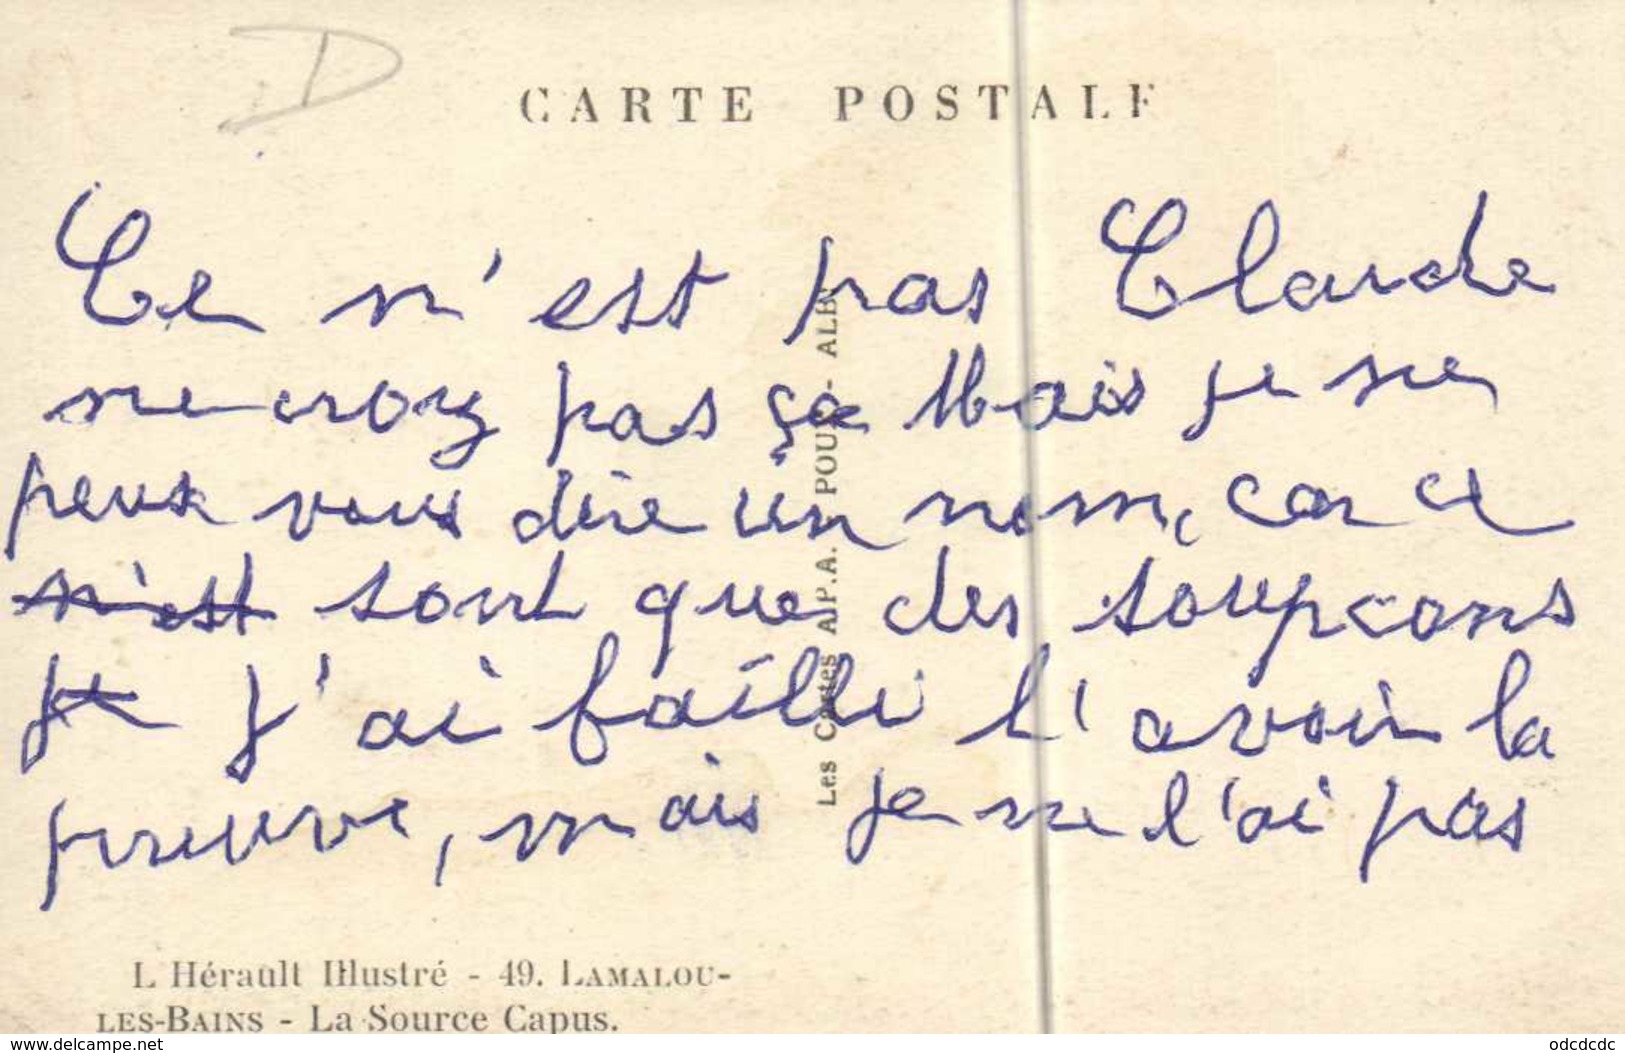 D
CARTE POSTALE
Ce n'est pas Claude
ne croiy pas ça Mais je ne
peux vous dire un nom, car ce
n'est sont que des soupçons
je j'ai failli l'avoir la
preuve, mais je ne l'ai pas
Les Cartes A.P.A. POUX - ALBI
L'Hérault Illustré - 49. LAMALOU-
LES-BAINS - La Source Capus.
www.delcampe.net
odcdcdc